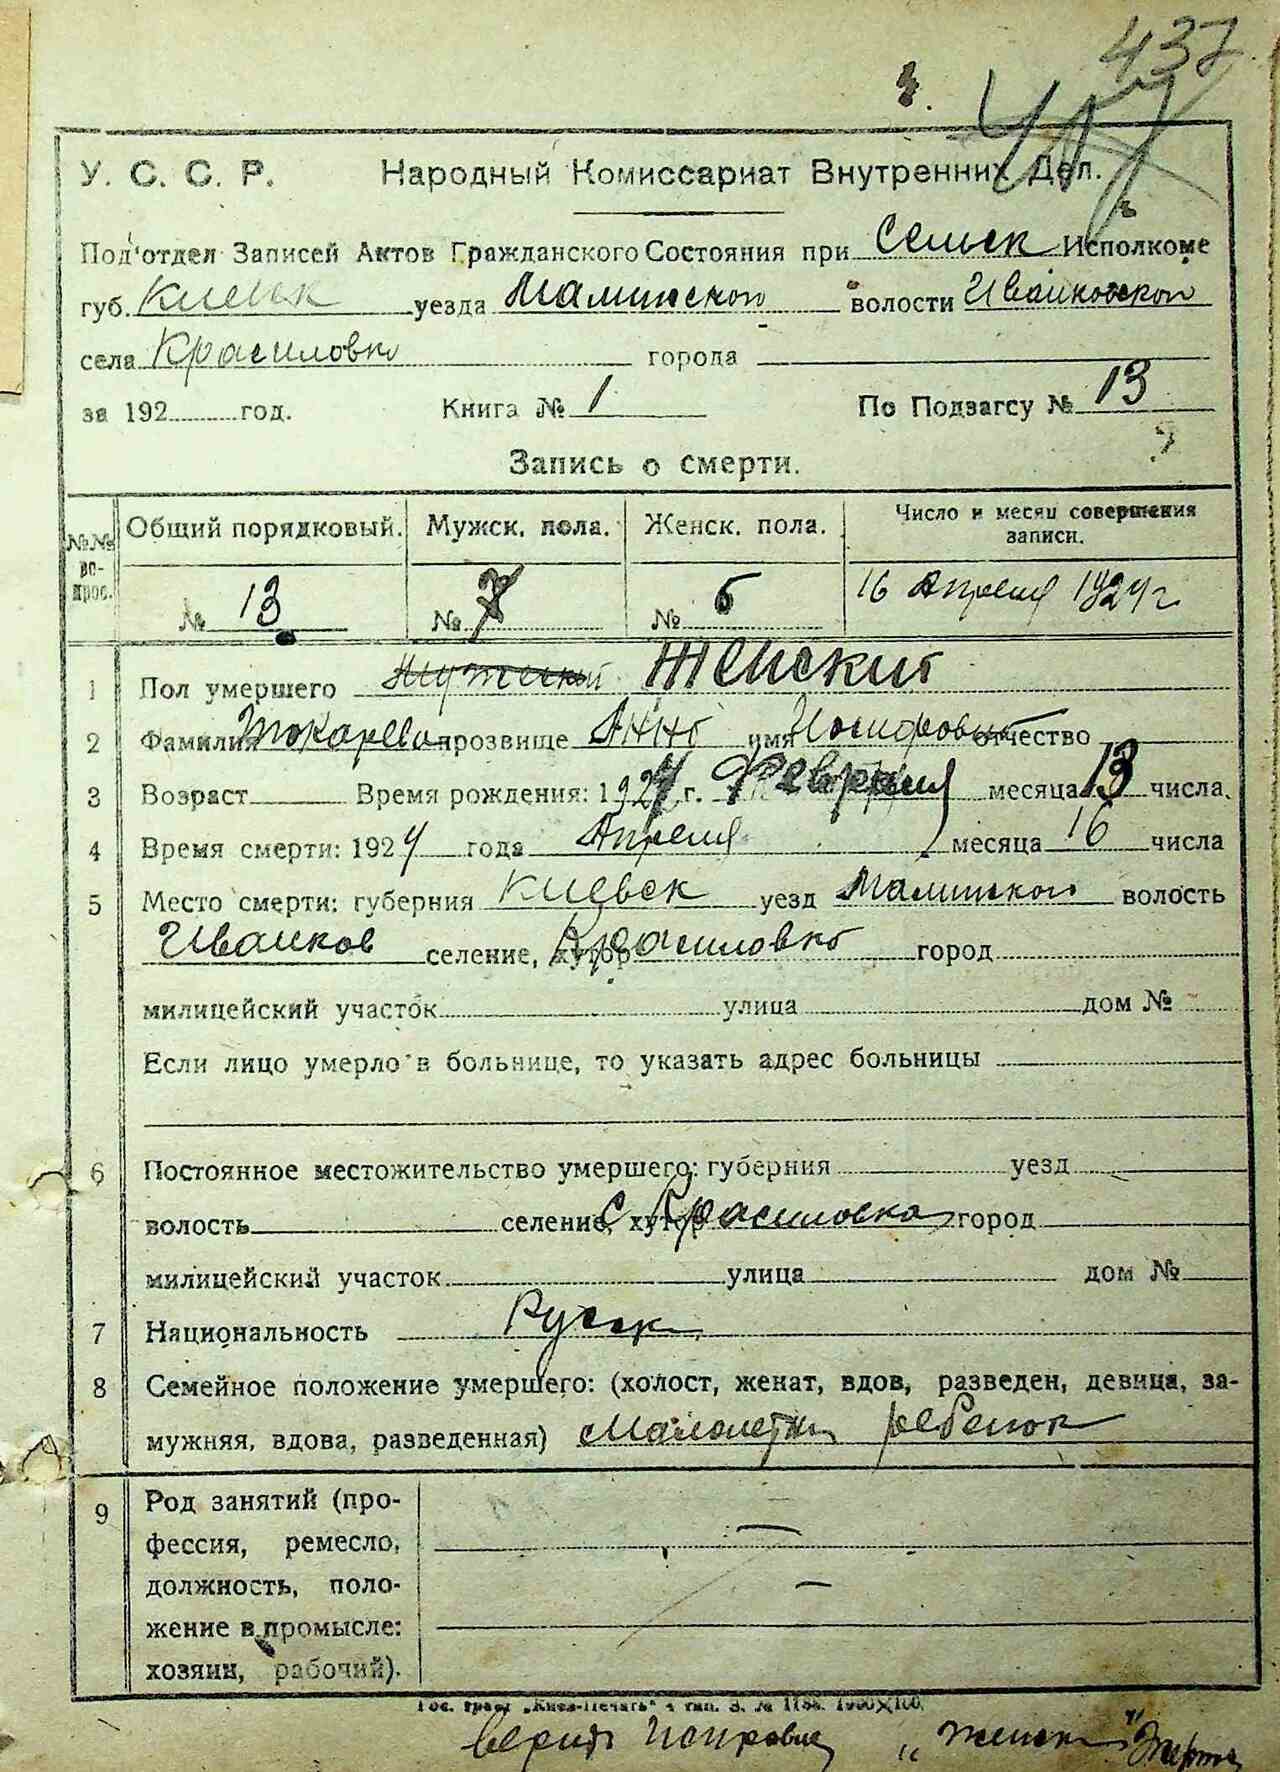 437
У. С. С. Р. Народный Комиссариат Внутренних Дел.
Под'отдел Записей Актов Гражданского Состояния при Сельск Исполкоме
губ. Киевск уезда Малинской волости Иванковской
села Красиловко города
за 192 год. Книга № 1 По Подзагсу № 13
Запись о смерти.
№№ во-прос. Общий порядковый. Мужск. пола. Женск. пола. Число и месяц совершения записи.
№ 13 № 7 № 6 16 Апреля 1924 г
1 Пол умершего Мужеский Женский
2 Фамилия Токарева прозвище Анна имя Иосифовна отчество
3 Возраст Время рождения: 1924 г. Февраля месяца 13 числа.
4 Время смерти: 1924 года Апреля месяца 16 числа
5 Место смерти: губерния Киевск уезд Малинской волость
Иванков селение, хутор Красиловко город
милицейский участок улица дом №
Если лицо умерло в больнице, то указать адрес больницы
6 Постоянное местожительство умершего: губерния уезд
волость селение, хутор С Красиловка город
милицейский участок улица дом №
7 Национальность Руск
8 Семейное положение умершего: (холост, женат, вдов, разведен, девица, за-
мужняя, вдова, разведенная) Малолетн ребенок
9 Род занятий (про-
фессия, ремесло,
должность, поло-
жение в промысле:
хозяин, рабочий).
Гос. трест „Киев-Печать" 4 тип. З. № 1188. 1900×100.
верить „Женск"